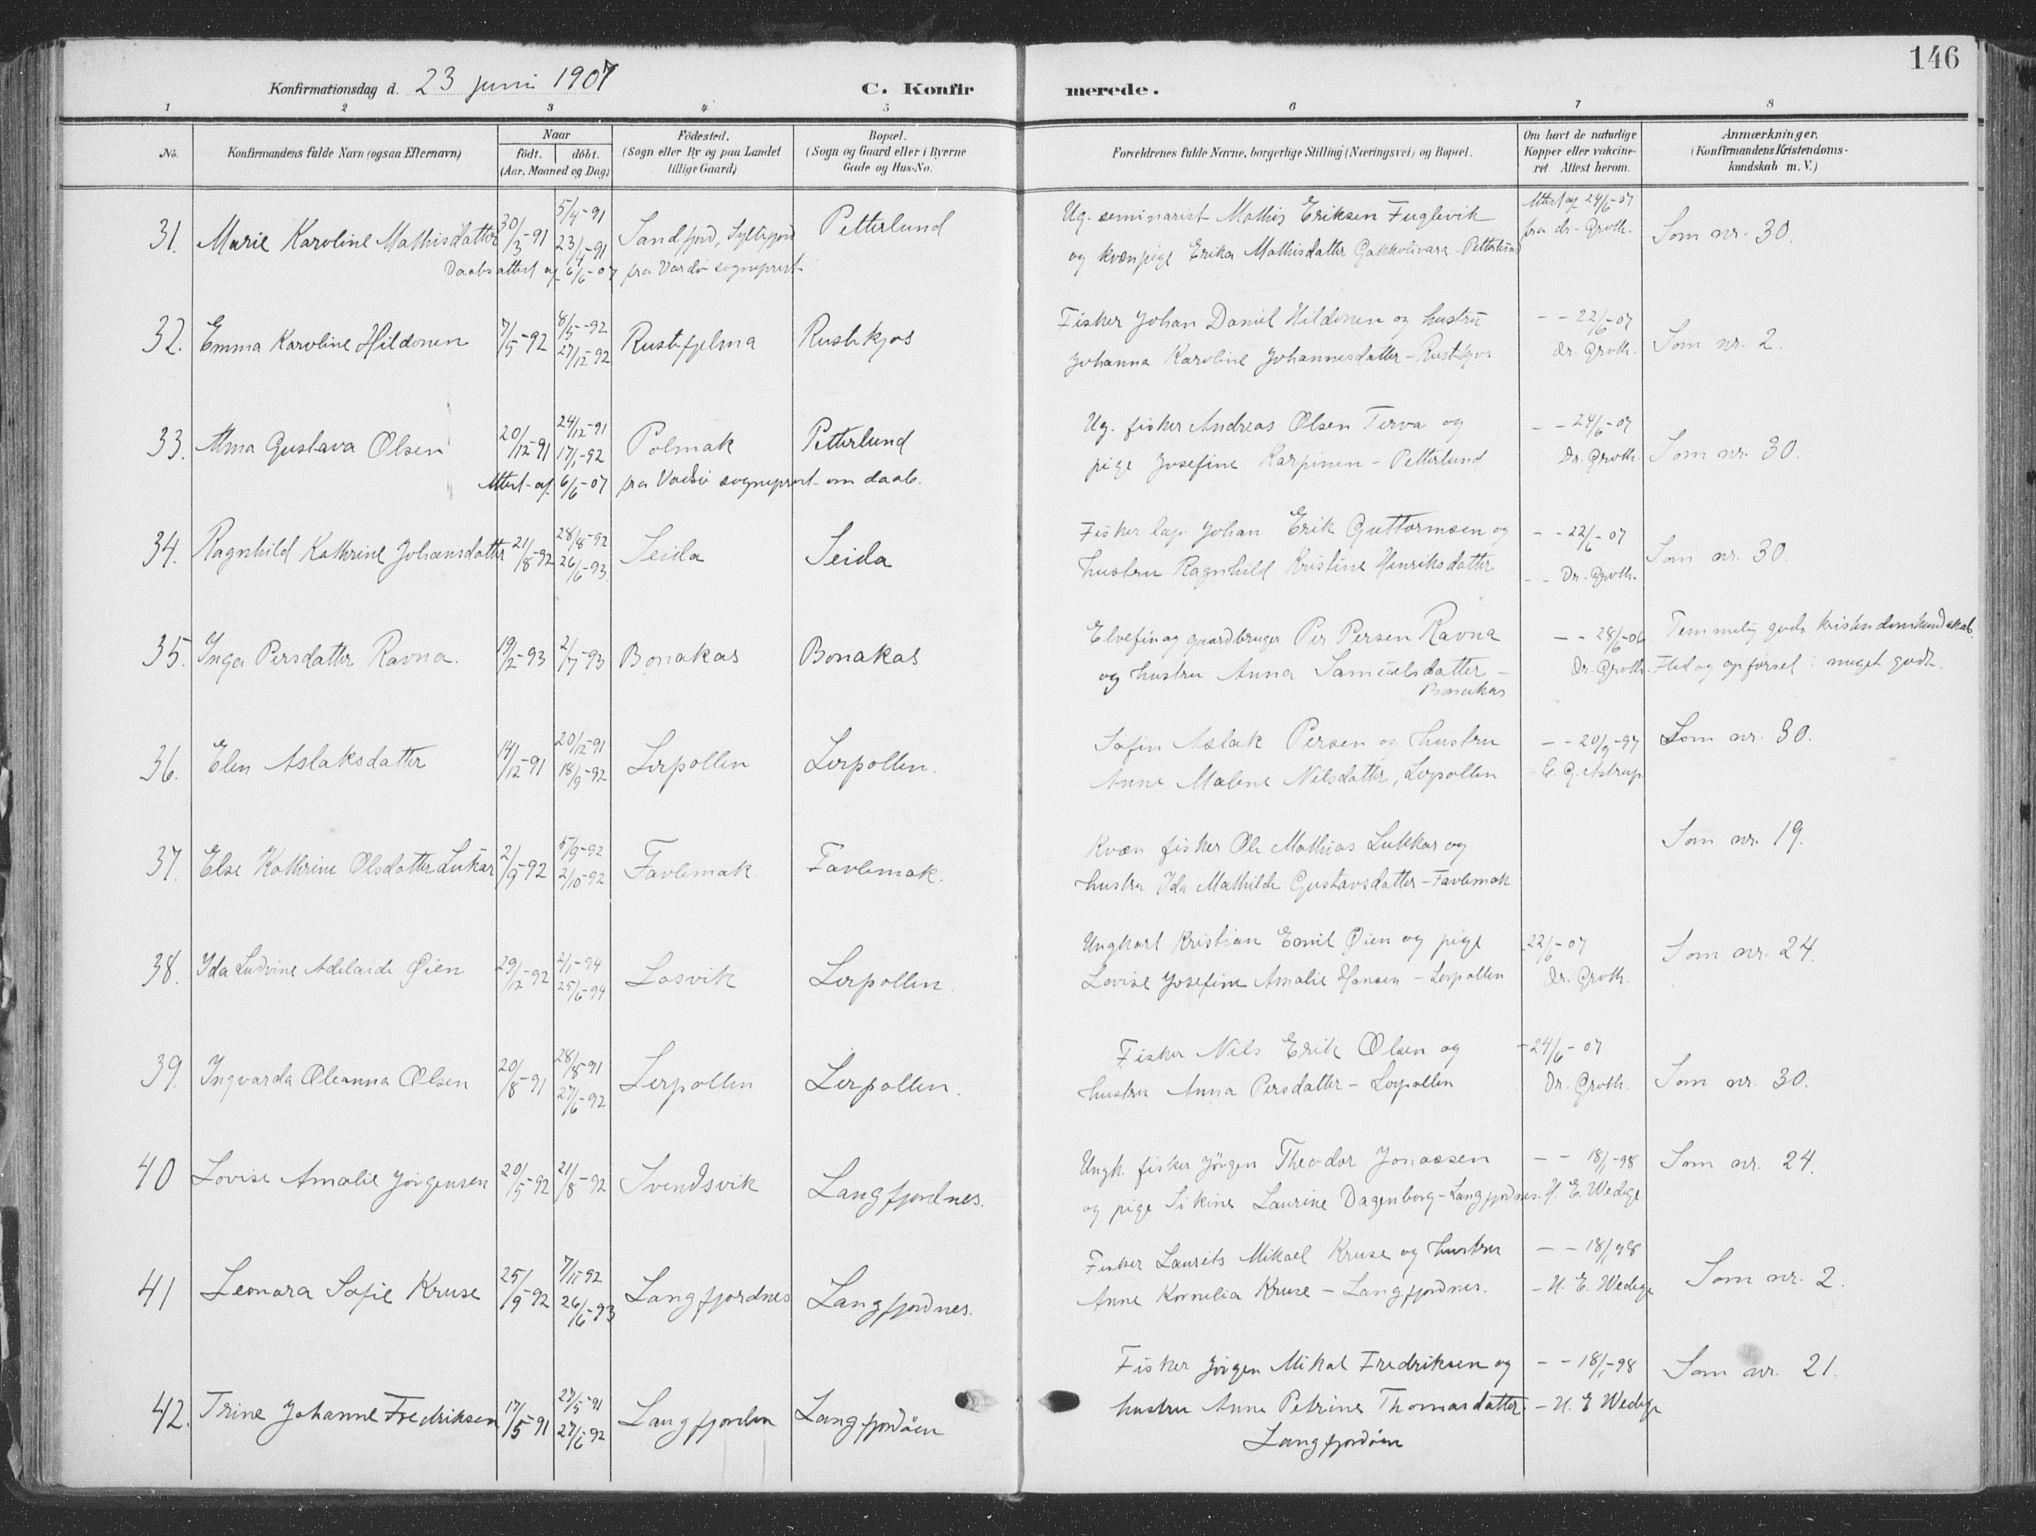 146
Konfirmationsdag d. 23 juni 1907
C. Konfirmerede.
1 2 3 4 5 6 7 8
No.
Konfirmandens fulde Navn (ogsaa Efternavn)
Naar
födt. döbt.
(Aar, Maaned og Dag)
Födested.
(Sogn eller By og paa Landet
tillige Gaard)
Bopæl.
(Sogn og Gaard eller i Byerne
Gade og Hus-No.
Forældrenes fulde Navne, borgerlige Stilling (Næringsvei) og Bopæl.
Om havt de naturlige
Kopper eller vakcine-
ret. Attest herom.
Anmærkninger.
(Konfirmandens Kristendoms-
kundskab m. V.)
31. Marie Karoline Mathisdatter 30/3-91 5/4-91 23/4-91 Sandfjord, Syltefjord Petterlund
Daabsattest af 6/6-07 fra Vardö sogneprest
Ug. seminarist Mathis Eriksen Fuglevik
og kvænpige Erika Mathisdatter Gakkolivara - Petterlund
Attest af 24/6-07
fra dr. Groth.
Som nr. 30.
32. Emma Karoline Hildonen 7/5-92 8/5-92 27/12-92 Rustefjelma Rustekjos
Fisker Johan Daniel Hildonen og hustru
Johanna Karoline Johannesdatter - Rustekjos
- - 22/6-07
dr. Groth.
Som nr. 2.
33. Alma Gustava Olsen 20/12-91 24/12-91 17/1-92 Polmak Petterlund
Attest af 6/6-07 fra Vadsö sogneprest om daab.
Ug. fisker Andreas Olsen Terva og
pige Josefine Karpinen - Petterlund
- - 24/6-07
Dr. Groth.
Som nr. 30.
34. Ragnhild Kathrine Johansdatter 21/8-92 28/8-92 26/6-93. Seida Seida
Fisker lap. Johan Erik Guttormsen og
hustru Ragnhild Kristine Henriksdatter
- - 22/6-07
- - Dr. Groth.
Som nr. 30.
35. Inga Persdatter Ravna. 19/2-93 2/7-93 Bonakas Bonakas
Elvefin og gaardbruger Per Persen Ravna
og hustru Anna Samuelsdatter -
Bonakas
- - 28/6-06
Dr. Groth.
Temmelig gode kristendomskundskab.
Flid og opförsel: meget godt.
36. Elen Aslaksdatter 14/12-91 20/12-91 18/9-92 Lerpollen Lerpollen.
Söfin Aslak Persen og hustru
Anne Malene Nilsdatter, Lerpollen
- - 20/9-97
- E. G. Astrup
Som nr. 30.
37. Else Kathrine Olsdatter Lukar 2/9-92 5/9-92 2/10-92 Favlemak. Favlemak.
Kvæn fisker Ole Mathias Lukkar og
hustru Ida Mathilde Gustavsdatter - Favlemak
Som nr. 19.
38. Ida Ludvine Adelaide Øien 29/12-92 2/1-94 25/6-94 Losvik Lerpollen.
Ungkarl Kristian Emil Øien og pige
Lovise Josefine Amalie Hansen - Lerpollen
22/6-07
Dr. Groth.
Som nr. 24.
39. Ingvarda Oleanna Olsen 20/8-91 28/8-91 27/6-92 Lerpollen Lerpollen.
Fisker Nils Erik Olsen og
hustru Anna Persdatter - Lerpollen
-24/6-07
Dr. Groth.
Som nr. 30.
40 Lovise Amalie Jörgensen 20/5-92 21/8-92 Svendsvik Langfjordnes.
Ungk. fisker Jörgen Theodor Jonassen
og pige Sikine Laurine Dagenborg - Langfjordnes.
- - 18/1-98
H. E. Wedege
Som nr. 24.
41 Leonora Sofie Kruse 25/9-92 7/11-92 26/6-93 Langfjordnes Langfjordnes.
Fisker Laurits Mikael Kruse og hustru
Anne Kornelia Kruse - Langfjordnes.
- - 18/1 98
- H. E. Wedege
Som nr. 2.
42. Trine Johanne Fredriksen 17/5-91 27/5-91 27/6-92 Langfjorden Langfjordöen
Fisker Jörgen Mikal Fredriksen og
hustru Anne Petrine Thomasdatter
Langfjordöen
- - 18/1-98
- H. E Wedege
Som nr. 21.